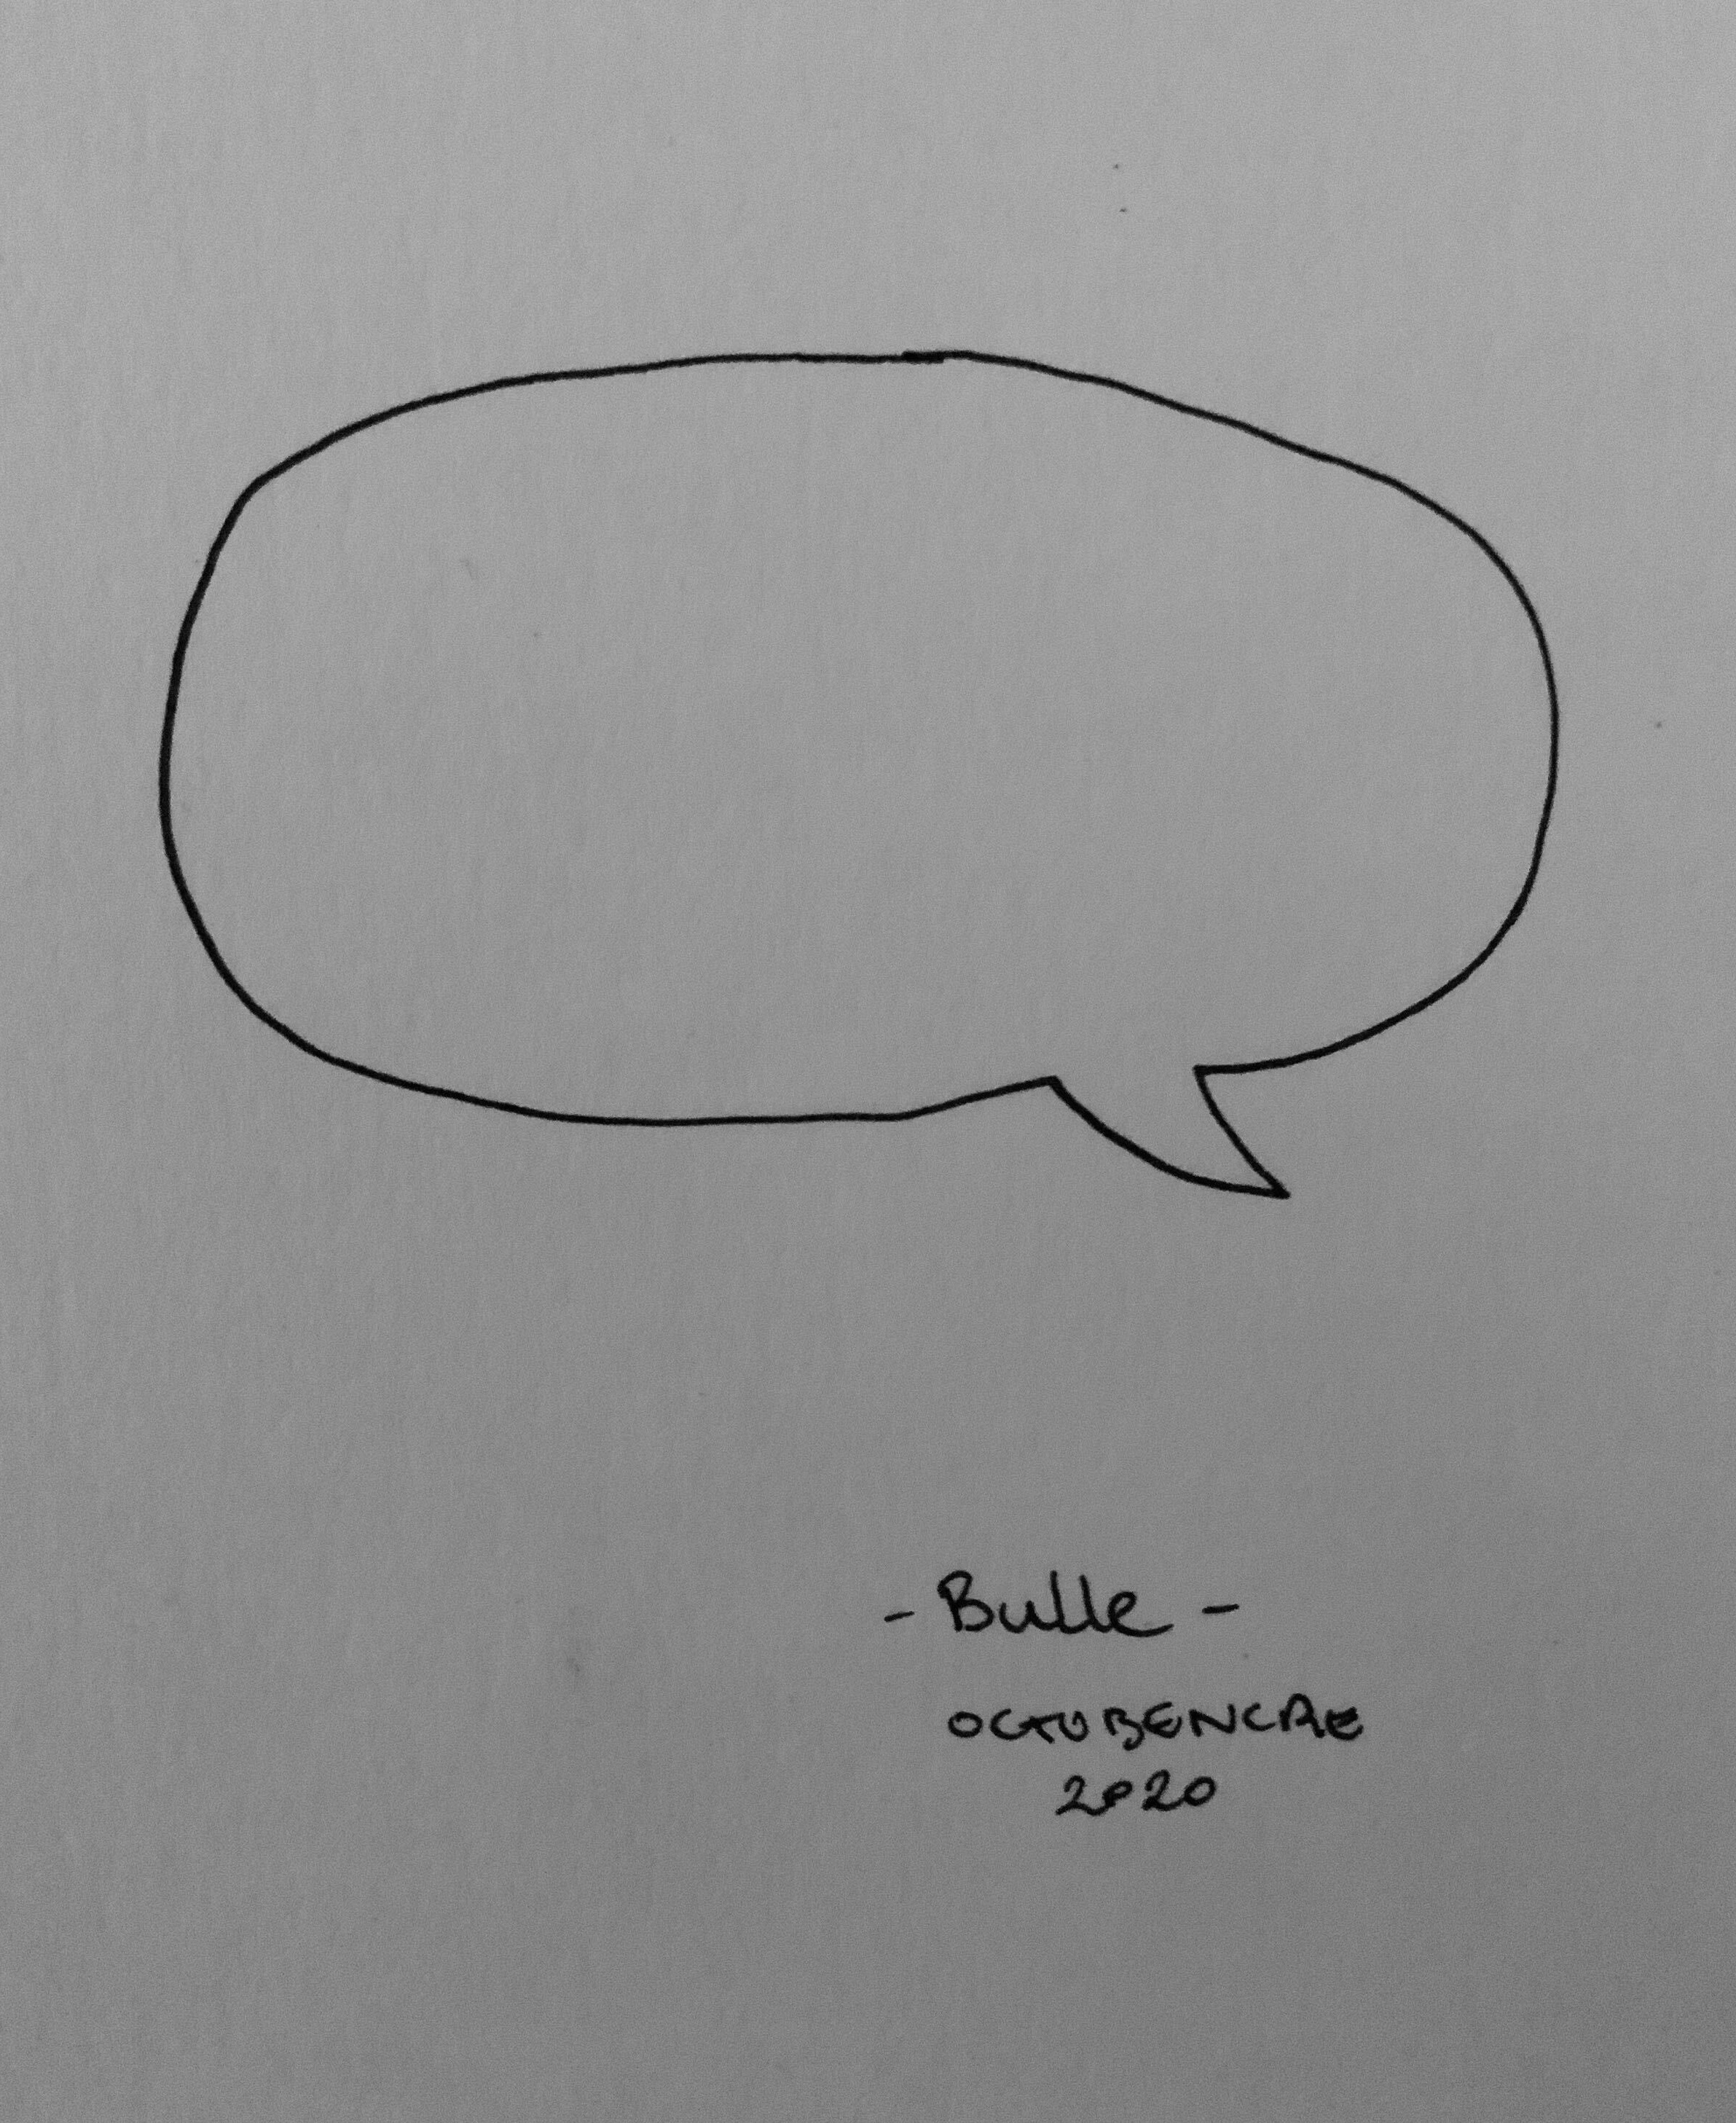 - Bulle -
OCTOBENCRE
2020